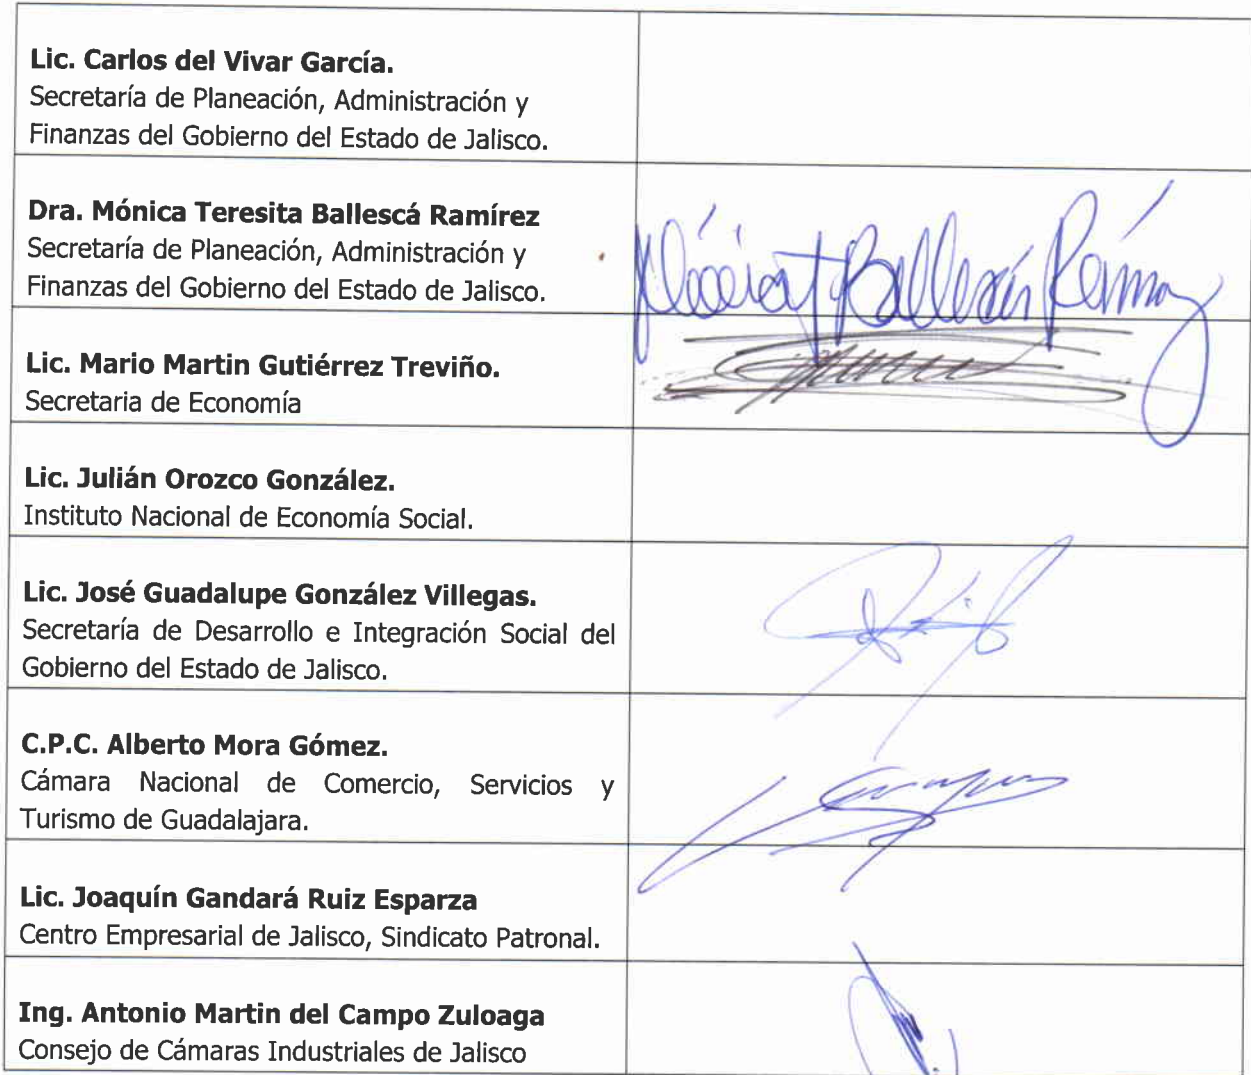 Lic. Carlos del Vivar García.
Secretaría de Planeación, Administración y
Finanzas del Gobierno del Estado de Jalisco.
Dra. Mónica Teresita Ballescá Ramírez
Secretaría de Planeación, Administración y
Finanzas del Gobierno del Estado de Jalisco.
Ballescá Ramírez
Lic. Mario Martin Gutiérrez Treviño.
Secretaria de Economía
Lic. Julián Orozco González.
Instituto Nacional de Economía Social.
Lic. José Guadalupe González Villegas.
Secretaría de Desarrollo e Integración Social del
Gobierno del Estado de Jalisco.
C.P.C. Alberto Mora Gómez.
Cámara Nacional de Comercio, Servicios y
Turismo de Guadalajara.
Lic. Joaquín Gandará Ruiz Esparza
Centro Empresarial de Jalisco, Sindicato Patronal.
Ing. Antonio Martin del Campo Zuloaga
Consejo de Cámaras Industriales de Jalisco